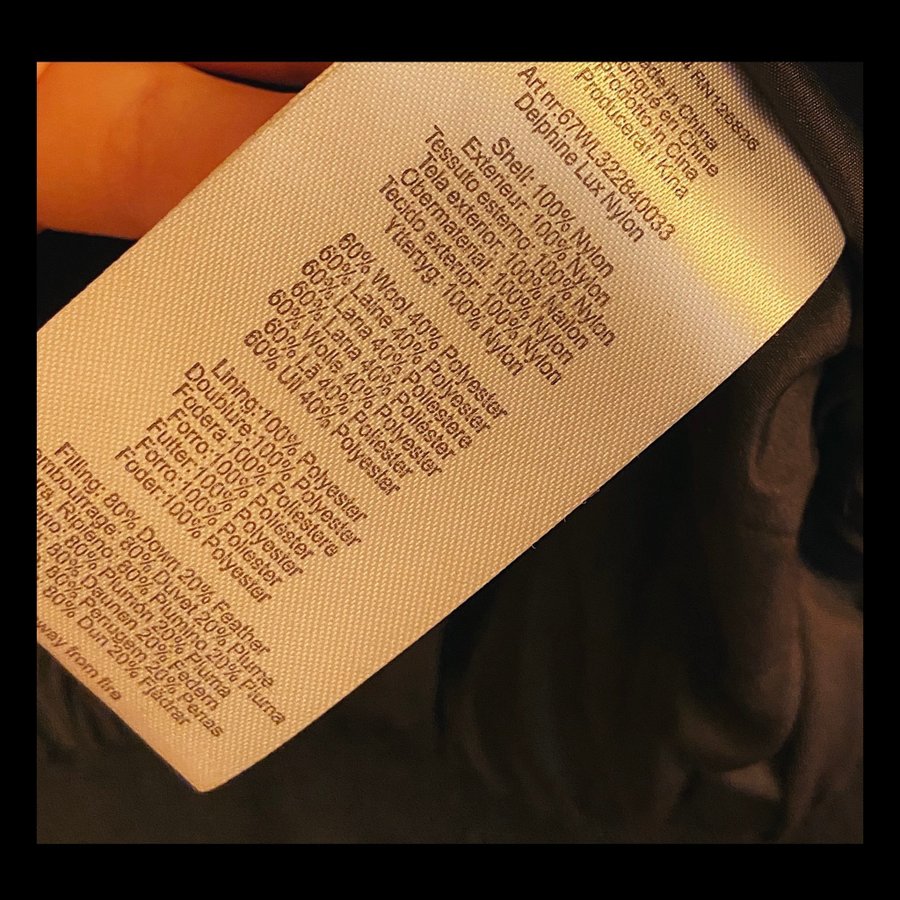 RN128836
Made in China
Fabriqué en Chine
Prodotto in Cina
Producerad i Kina
Art nr:67WL322840033
Delphine Lux Nylon
Shell: 100% Nylon
Exterieur: 100% Nylon
Tessuto esterno: 100% Nylon
Tela exterior: 100% Nailon
Obermaterial: 100% Nylon
Tecido exterior: 100% Nylon
Yttertyg: 100% Nylon
60% Wool 40% Polyester
60% Laine 40% Polyester
60% Lana 40% Poliestere
60% Lana 40% Poliéster
60% Wolle 40% Polyester
60% Lã 40% Poliéster
60% Ull 40% Polyester
Lining:100% Polyester
Doublure:100% Polyester
Fodera:100% Poliestere
Forro:100% Poliéster
Futter:100% Polyester
Forro:100% Poliéster
Foder:100% Polyester
Filling: 80% Down 20% Feather
80% Duvet 20% Plume
80% Piumino 20% Piuma
80% Plumón 20% Pluma
80% Daunen 20% Federn
80% Penugem 20% Penas
80% Dun 20% Fjädrar
away from fire